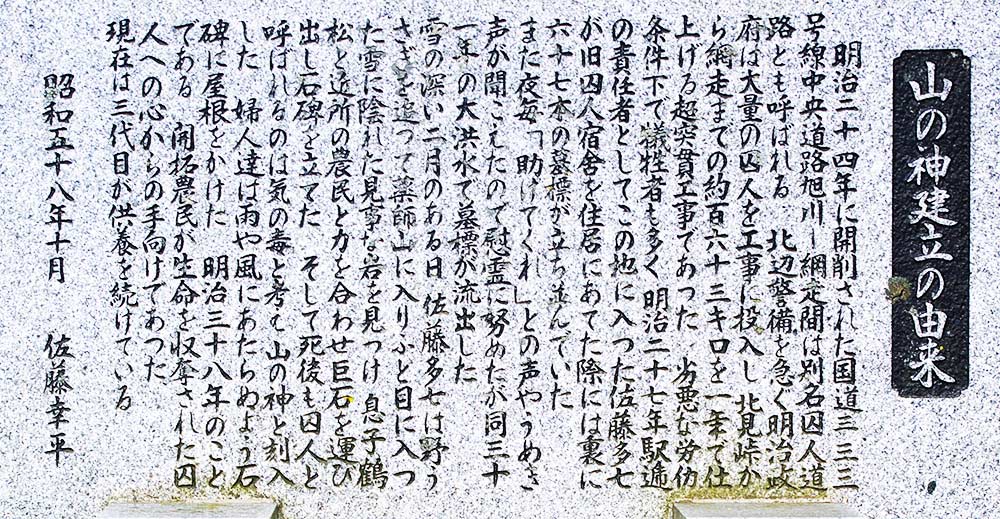 山の神建立の由来
明治二十四年に開削された国道三三三
号線中央道路旭川ー網走間は別名囚人道
路とも呼ばれる 北辺警備を急ぐ明治政
府は大量の囚人を工事に投入し 北見峠か
ら網走までの約百六十三キロを一年で仕
上げる超突貫工事であった 劣悪な労働
条件下で犠牲者も多く 明治二十七年駅逓
の責任者としてこの地に入った佐藤多七
が旧囚人宿舎を住居にあてた際には裏に
六十七本の墓標が立ち並んでいた
また夜毎「助けてくれ」との声やうめき
声が聞こえたので慰霊に努めたが同三十
一年の大洪水で墓標が流出した
雪の深い二月のある日 佐藤多七は野う
さぎを追って薬師山に入りふと目に入っ
た雪に陰れた見事な岩を見つけ 息子鶴
松と近所の農民と力を合わせ巨石を運び
出し石碑を立てた そして死後も囚人と
呼ばれるのは気の毒と考え山の神と刻入
した 婦人達は雨や風にあたらぬよう石
碑に屋根をかけた 明治三十八年のこと
である 開拓農民が生命を収奪された囚
人への心からの手向けであった
現在は三代目が供養を続けている
昭和五十八年十月 佐藤幸平